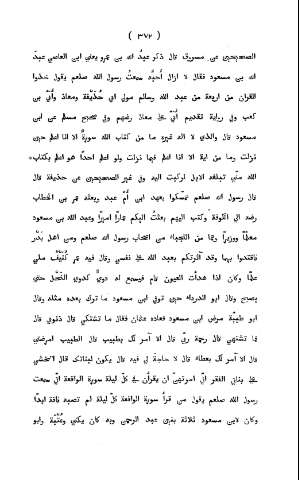 ( ٣٧٢ )
الصحيحين عن مسروق قال ذكر عبد الله بن عمرو يعنى ابن العاصى عبد
الله بن مسعود فقال لا ازال أُحبّه سمعت رسول الله صلعم يقول خذوا
القرآن من اربعة من عبد الله وسالم مولى ابى حُذَيْفة ومعاذ وأُبَىّ بن
كعب وفى رواية تقديم أُبَىّ على معاذ رضهم وفى صحيح مسلم عن ابن
مسعود قال والذى لا اله غيره ما من كتاب الله سورة الا انا اعلم حين
نزلت وما من آية الا انا اعلم فيما نزلت ولو اعلم احدًا هو اعلم بكتاب
الله منّى تبلغه الابل لركبت اليه وفى غير الصحيحين عن حذيفة قال
قال رسول الله صلعم تمسّكوا بعهد ابن أُمّ عبد وبعثه عمر بن الخطاب
رضه الى الكوفة وكتب اليهم بعثتُ اليكم عمّارًا اميرًا وعبد الله بن مسعود
معلّمًا ووزيرًا وهما من النجباء من اصحاب رسول الله صلعم ومن اهل بَدْر
فاقتدوا بهما وقد آثرتكم بعبد الله على نفسى وقال فيه عمر كُنَيْف ملئ
علمًا وكان اذا هدأت العيون قام فيسمع له دوىّ كدوىّ النحل حتى
يصبح وقال ابو الدرداء حين توفى ابن مسعود ما ترك بعده مثله وقال
ابو طيبة مرض ابن مسعود فعاده عثمان فقال ما تشتكى قال ذنوبى قال
فما تشتهى قال رحمة ربّى قال الا آمر لك بطبيب قال الطبيب امرضنى
قال الا آمر لك بعطاء قال لا حاجة لى فيه قال يكون لبناتك قال اتخشى
على بناتى الفقر انى امرتهنّ ان يقرأن فى كلّ ليلة سورة الواقعة انى سمعت
رسول الله صلعم يقول من قرأ سورة الواقعة كلّ ليلة لم تصبه فاقة ابدًا
وكان لابن مسعود ثلاثة بنين عبد الرحمن وبه كان يكنى وعُتْبة وابو